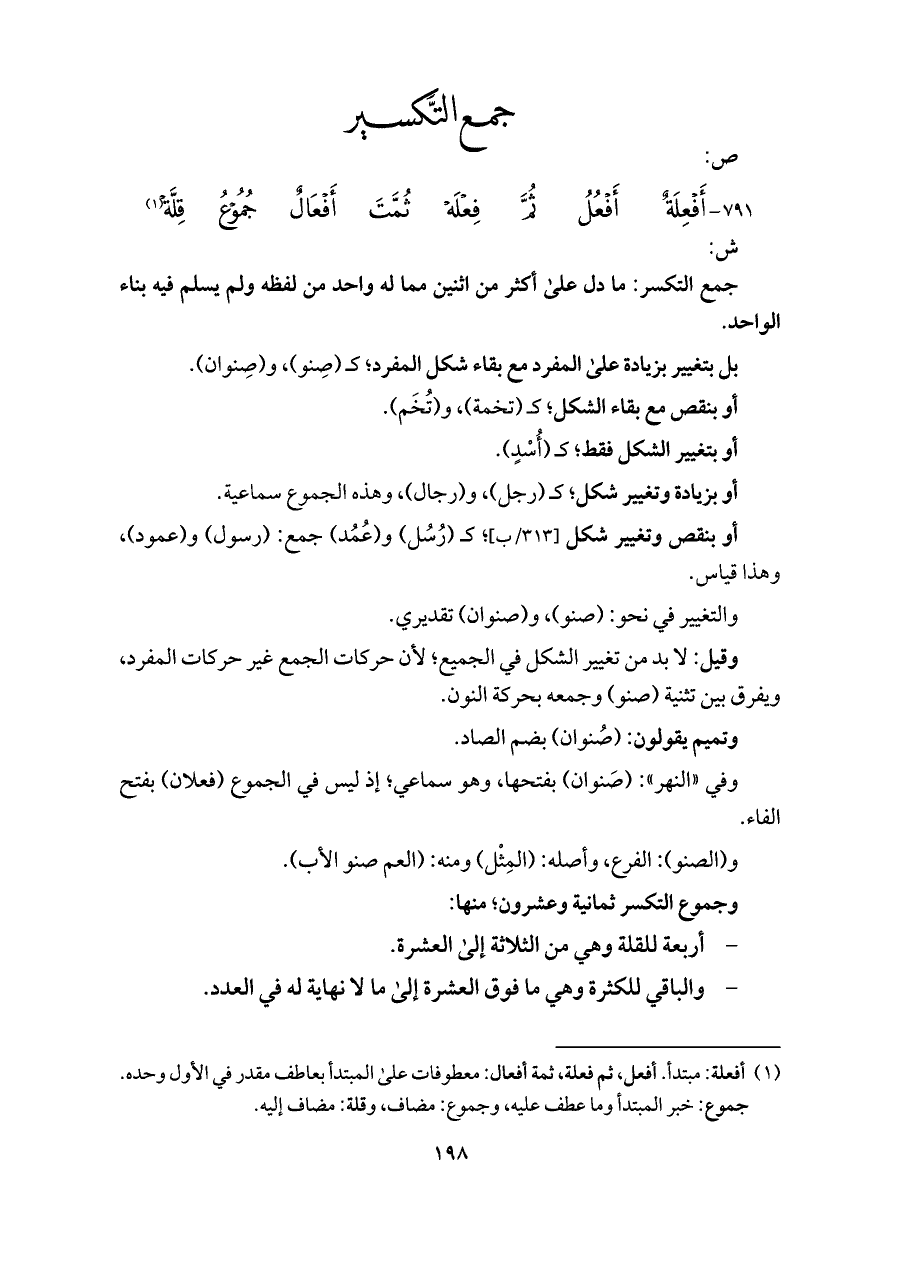 جمع التَّكسير
ص:
٧٩١- أَفْعِلَةٌ أَفْعُلُ ثُمَّ فِعْلَهْ ثُمَّتَ أَفْعَالٌ جُمُوْعُ قِلَّهْ(١)
ش:
جمع التكسر: ما دل علىٰ أكثر من اثنين مما له واحد من لفظه ولم يسلم فيه بناء
الواحد.
بل بتغيير بزيادة علىٰ المفرد مع بقاء شكل المفرد؛ كـ (صِنو)، و(صِنوان).
أو بنقص مع بقاء الشكل؛ كـ (تخمة)، و(تُخَم).
أو بتغيير الشكل فقط؛ كـ (أُسْدٍ).
أو بزيادة وتغيير شكل؛ كـ (رجل)، و(رجال)، وهذه الجموع سماعية.
أو بنقص وتغيير شكل [٣١٣/ب]؛ كـ (رُسُل) و(عُمُد) جمع: (رسول) و(عمود)،
وهذا قياس.
والتغيير في نحو: (صنو)، و(صنوان) تقديري.
وقيل: لا بد من تغيير الشكل في الجميع؛ لأن حركات الجمع غير حركات المفرد،
ويفرق بين تثنية (صنو) وجمعه بحركة النون.
وتميم يقولون: (صُنوان) بضم الصاد.
وفي «النهر»: (صَنوان) بفتحها، وهو سماعي؛ إذ ليس في الجموع (فعلان) بفتح
الفاء.
و(الصنو): الفرع، وأصله: (المِثْل) ومنه: (العم صنو الأب).
وجموع التكسر ثمانية وعشرون؛ منها:
– أربعة للقلة وهي من الثلاثة إلىٰ العشرة.
– والباقي للكثرة وهي ما فوق العشرة إلىٰ ما لا نهاية له في العدد.
(١) أفعلة: مبتدأ. أفعل، ثم فعلة، ثمة أفعال: معطوفات علىٰ المبتدأ بعاطف مقدر في الأول وحده.
جموع: خبر المبتدأ وما عطف عليه، وجموع: مضاف، وقلة: مضاف إليه.
١٩٨